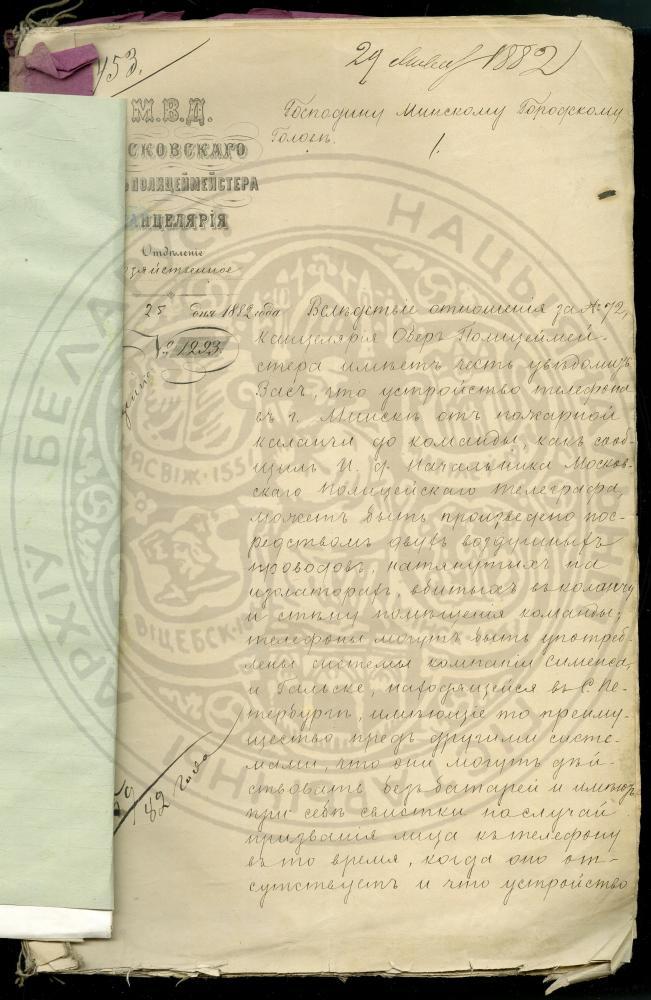 453.
29 Января 1882
М.В.Д.
СКОВСКАГО
ПОЛИЦЕЙМЕЙСТЕРА
АНЦЕЛЯРІЯ
Отдѣленіе
зяйственное
25 дня 1882 года
№ 1223.
Господину Минскому Городскому
Головѣ.
1.
Вслѣдствіе отношенія за № 72,
Канцелярія Оберъ Полицеймей-
стера имѣетъ честь увѣдомить
Васъ, что устройство телефона
въ г. Минскѣ отъ пожарной
каланчи до команды, какъ сооб-
щилъ И. д. Начальника Москов-
скаго Полицейскаго Телеграфа,
можетъ быть произведено пос-
редствомъ двухъ воздушныхъ
проводовъ, натянутыхъ на
изолаторахъ, вбитыхъ въ каланчу
и стѣну помѣщенія команды;
телефоны могутъ быть употреб-
лены системы компаніи Сименса,
и Гальске, находящейся въ С. Пе-
тербургѣ, имѣющіе то преиму-
щество предъ другими систе-
мами, что они могутъ дѣй-
ствовать безъ батарей и имѣютъ
при себѣ свистки на случай
призванія лица къ телефону
въ то время, когда оно от-
сутствуетъ и что устройство
82 года
НАЦЫ
АРХІЎ БЕЛА
НЯСВІЖ·155
ВІЦЕБСК